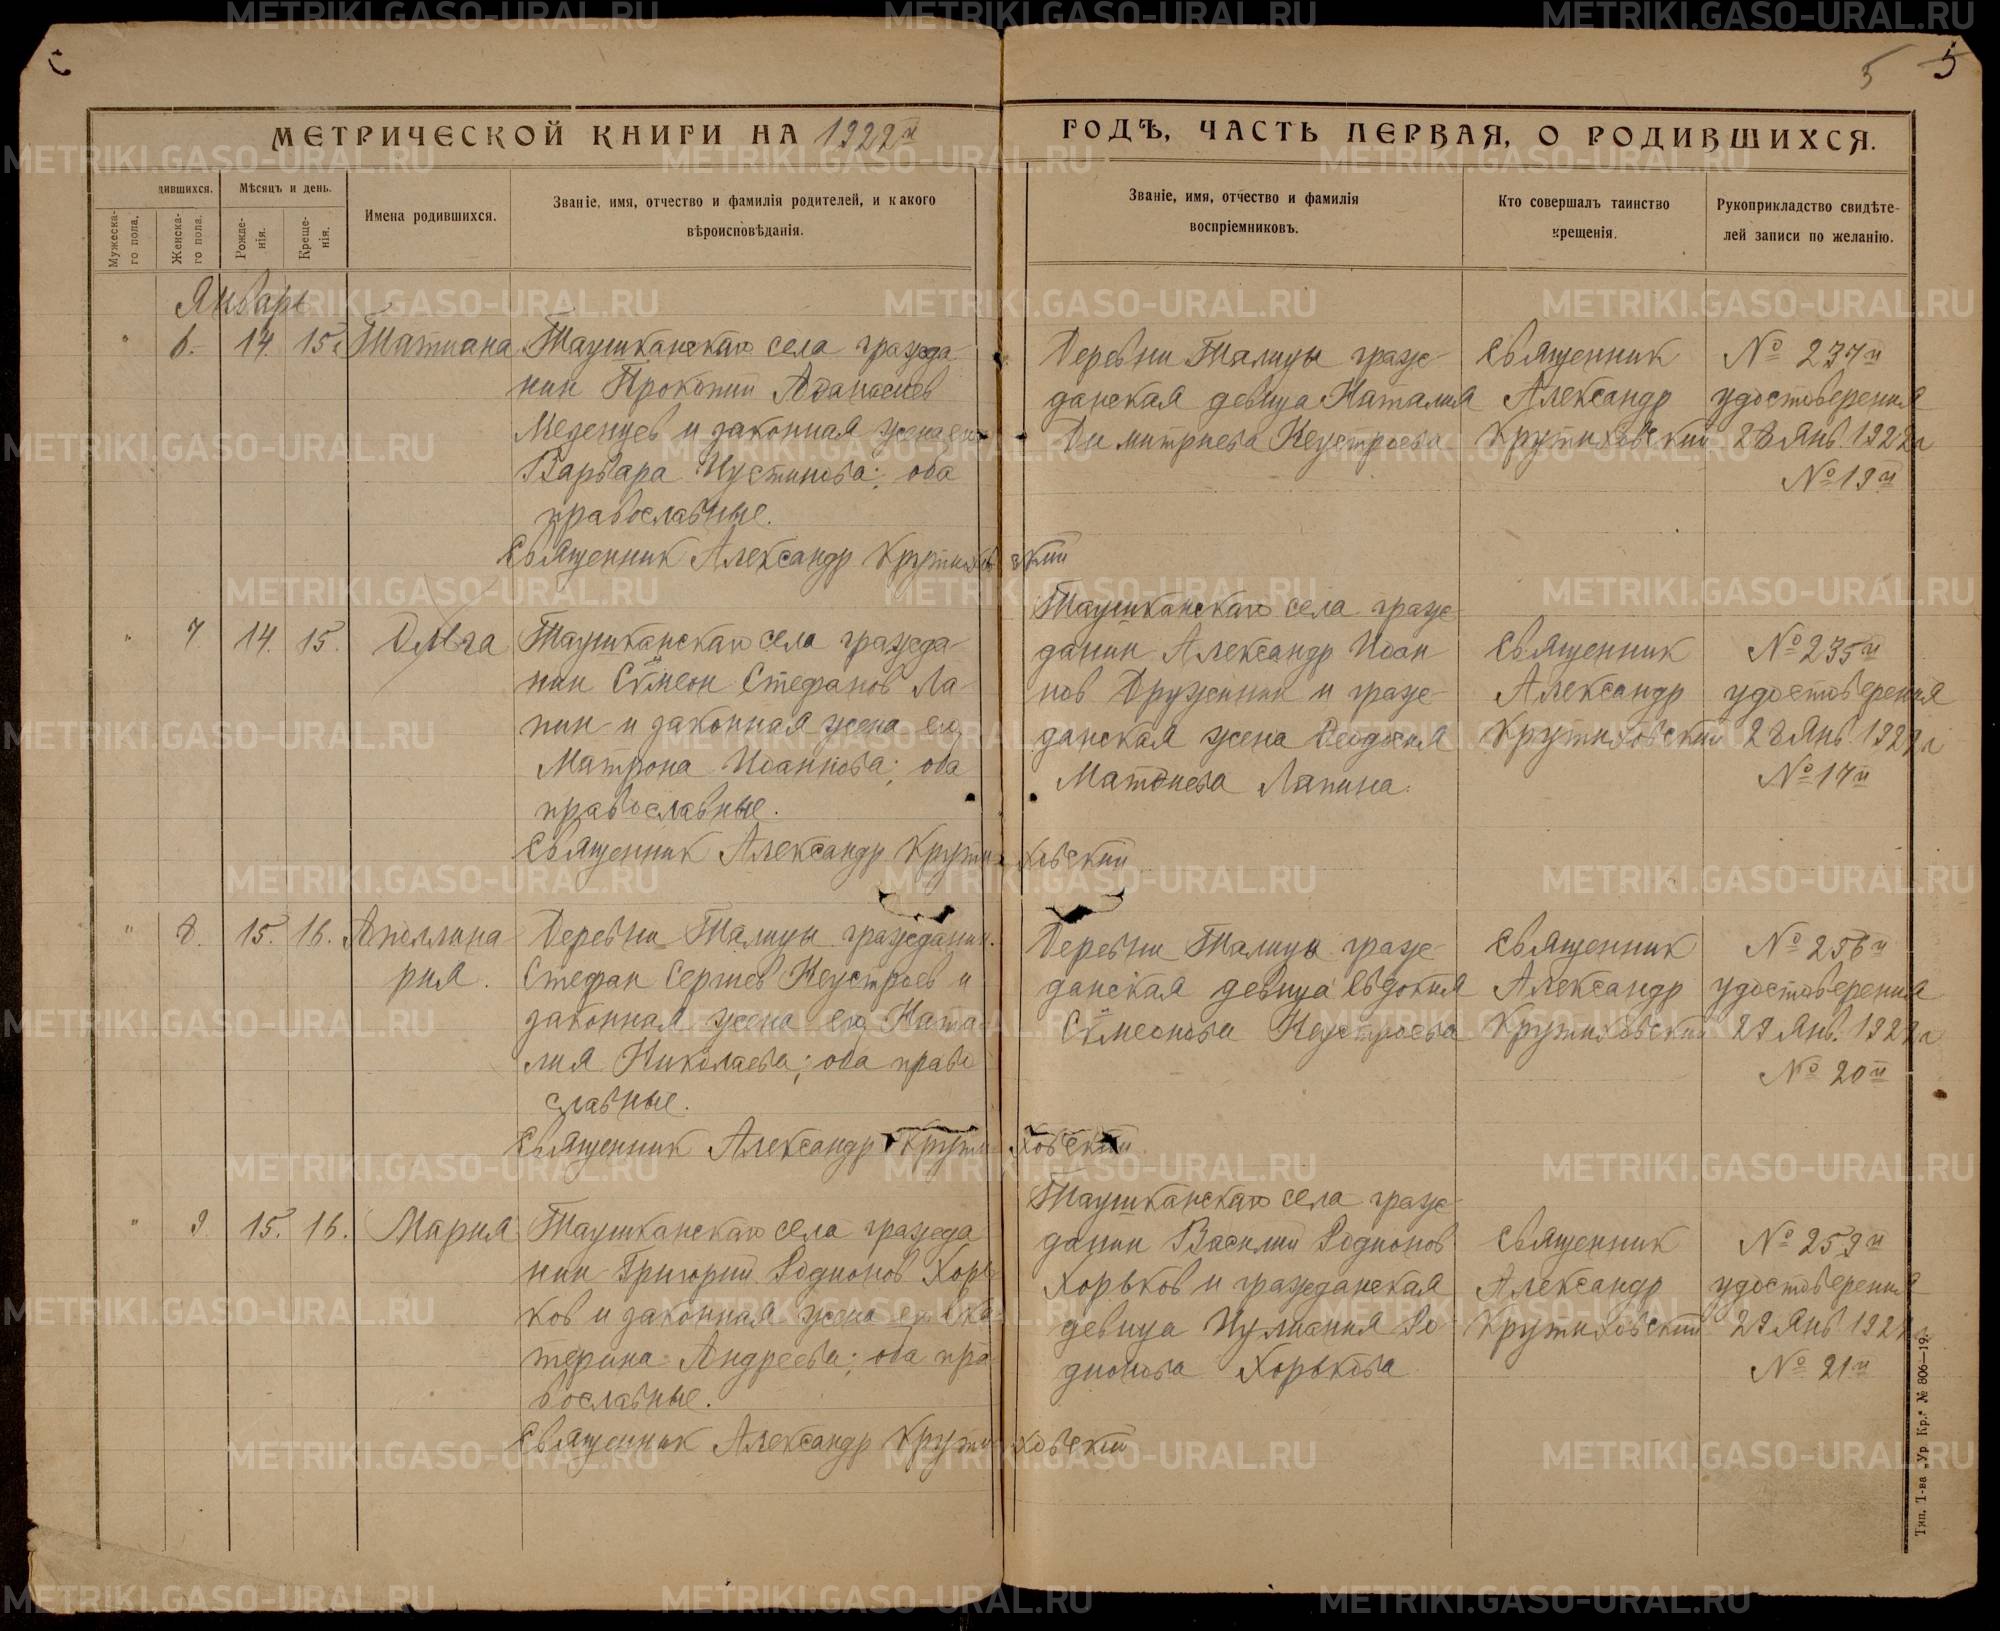 5 5
МЕТРИЧЕСКОЙ КНИГИ НА 1922й ГОДЪ, ЧАСТЬ ПЕРВАЯ, О РОДИВШИХСЯ.
дившихся.
Мужеска-
го пола.
Женска-
го пола.
Мѣсяцъ и день.
Рожде-
нія.
Креще-
нія.
Имена родившихся.
Званіе, имя, отчество и фамилія родителей, и какого
вѣроисповѣданія.
Званіе, имя, отчество и фамилія
воспріемниковъ.
Кто совершалъ таинство
крещенія.
Рукоприкладство свидѣте-
лей записи по желанію.
Январь
" 6. 14. 15. Татиана
Таушканскаго села гражда
нин Прокопий Афанасиев
Меденцев и законная жена его
Варвара Иустинова; оба
православные.
Священник Александр Крутиховский
Деревни Талицы граж-
данская девица Наталия
Димитриева Неустроева
Священник
Александр
Крутиховский
№ 237й
удостоверения
28 Янв. 1922г
№ 19й
" 7. 14. 15. Ольга
Таушканскаго села гражда-
нин Сѵмеон Стефанов Ла-
пин и законная жена его
Матрона Иоаннова; оба
православные.
Священник Александр Крутиховский
Таушканскаго села граж-
данин Александр Иоан
нов Дружинин и граж-
данская жена Феодосия
Матфиева Лапина.
Священник
Александр
Крутиховский
№ 235й
удостоверения
28 Янв. 1922г
№ 17й
" 8. 15. 16. Аполлина
рия.
Деревни Талицы гражданин
Стефан Сергиев Неустроев и
законная жена его Ната
лия Николаева; оба право
славные.
Священник Александр Крутиховский
Деревни Талицы граж-
данская девица Евдокия
Сѵмеонова Неустроева
Священник
Александр
Крутиховский
№ 256й
удостоверения
29 Янв. 1922г
№ 20й
" 9. 15. 16. Мария
Таушканскаго села гражда
нин Григорий Родионов Хорь
ков и законная жена его Ека
терина Андреева; оба пра
вославные.
Священник Александр Крутиховский
Таушканскаго села граж-
данин Василий Родионов
Хорьков и гражданская
девица Иулиания Ро
дионова Хорькова
Священник
Александр
Крутиховский
№ 259й
удостоверения
29 Янв. 1922
№ 21й
Тип. Т-ва „Ур. Кр.“ № 806—19.
METRIKI.GASO-URAL.RU